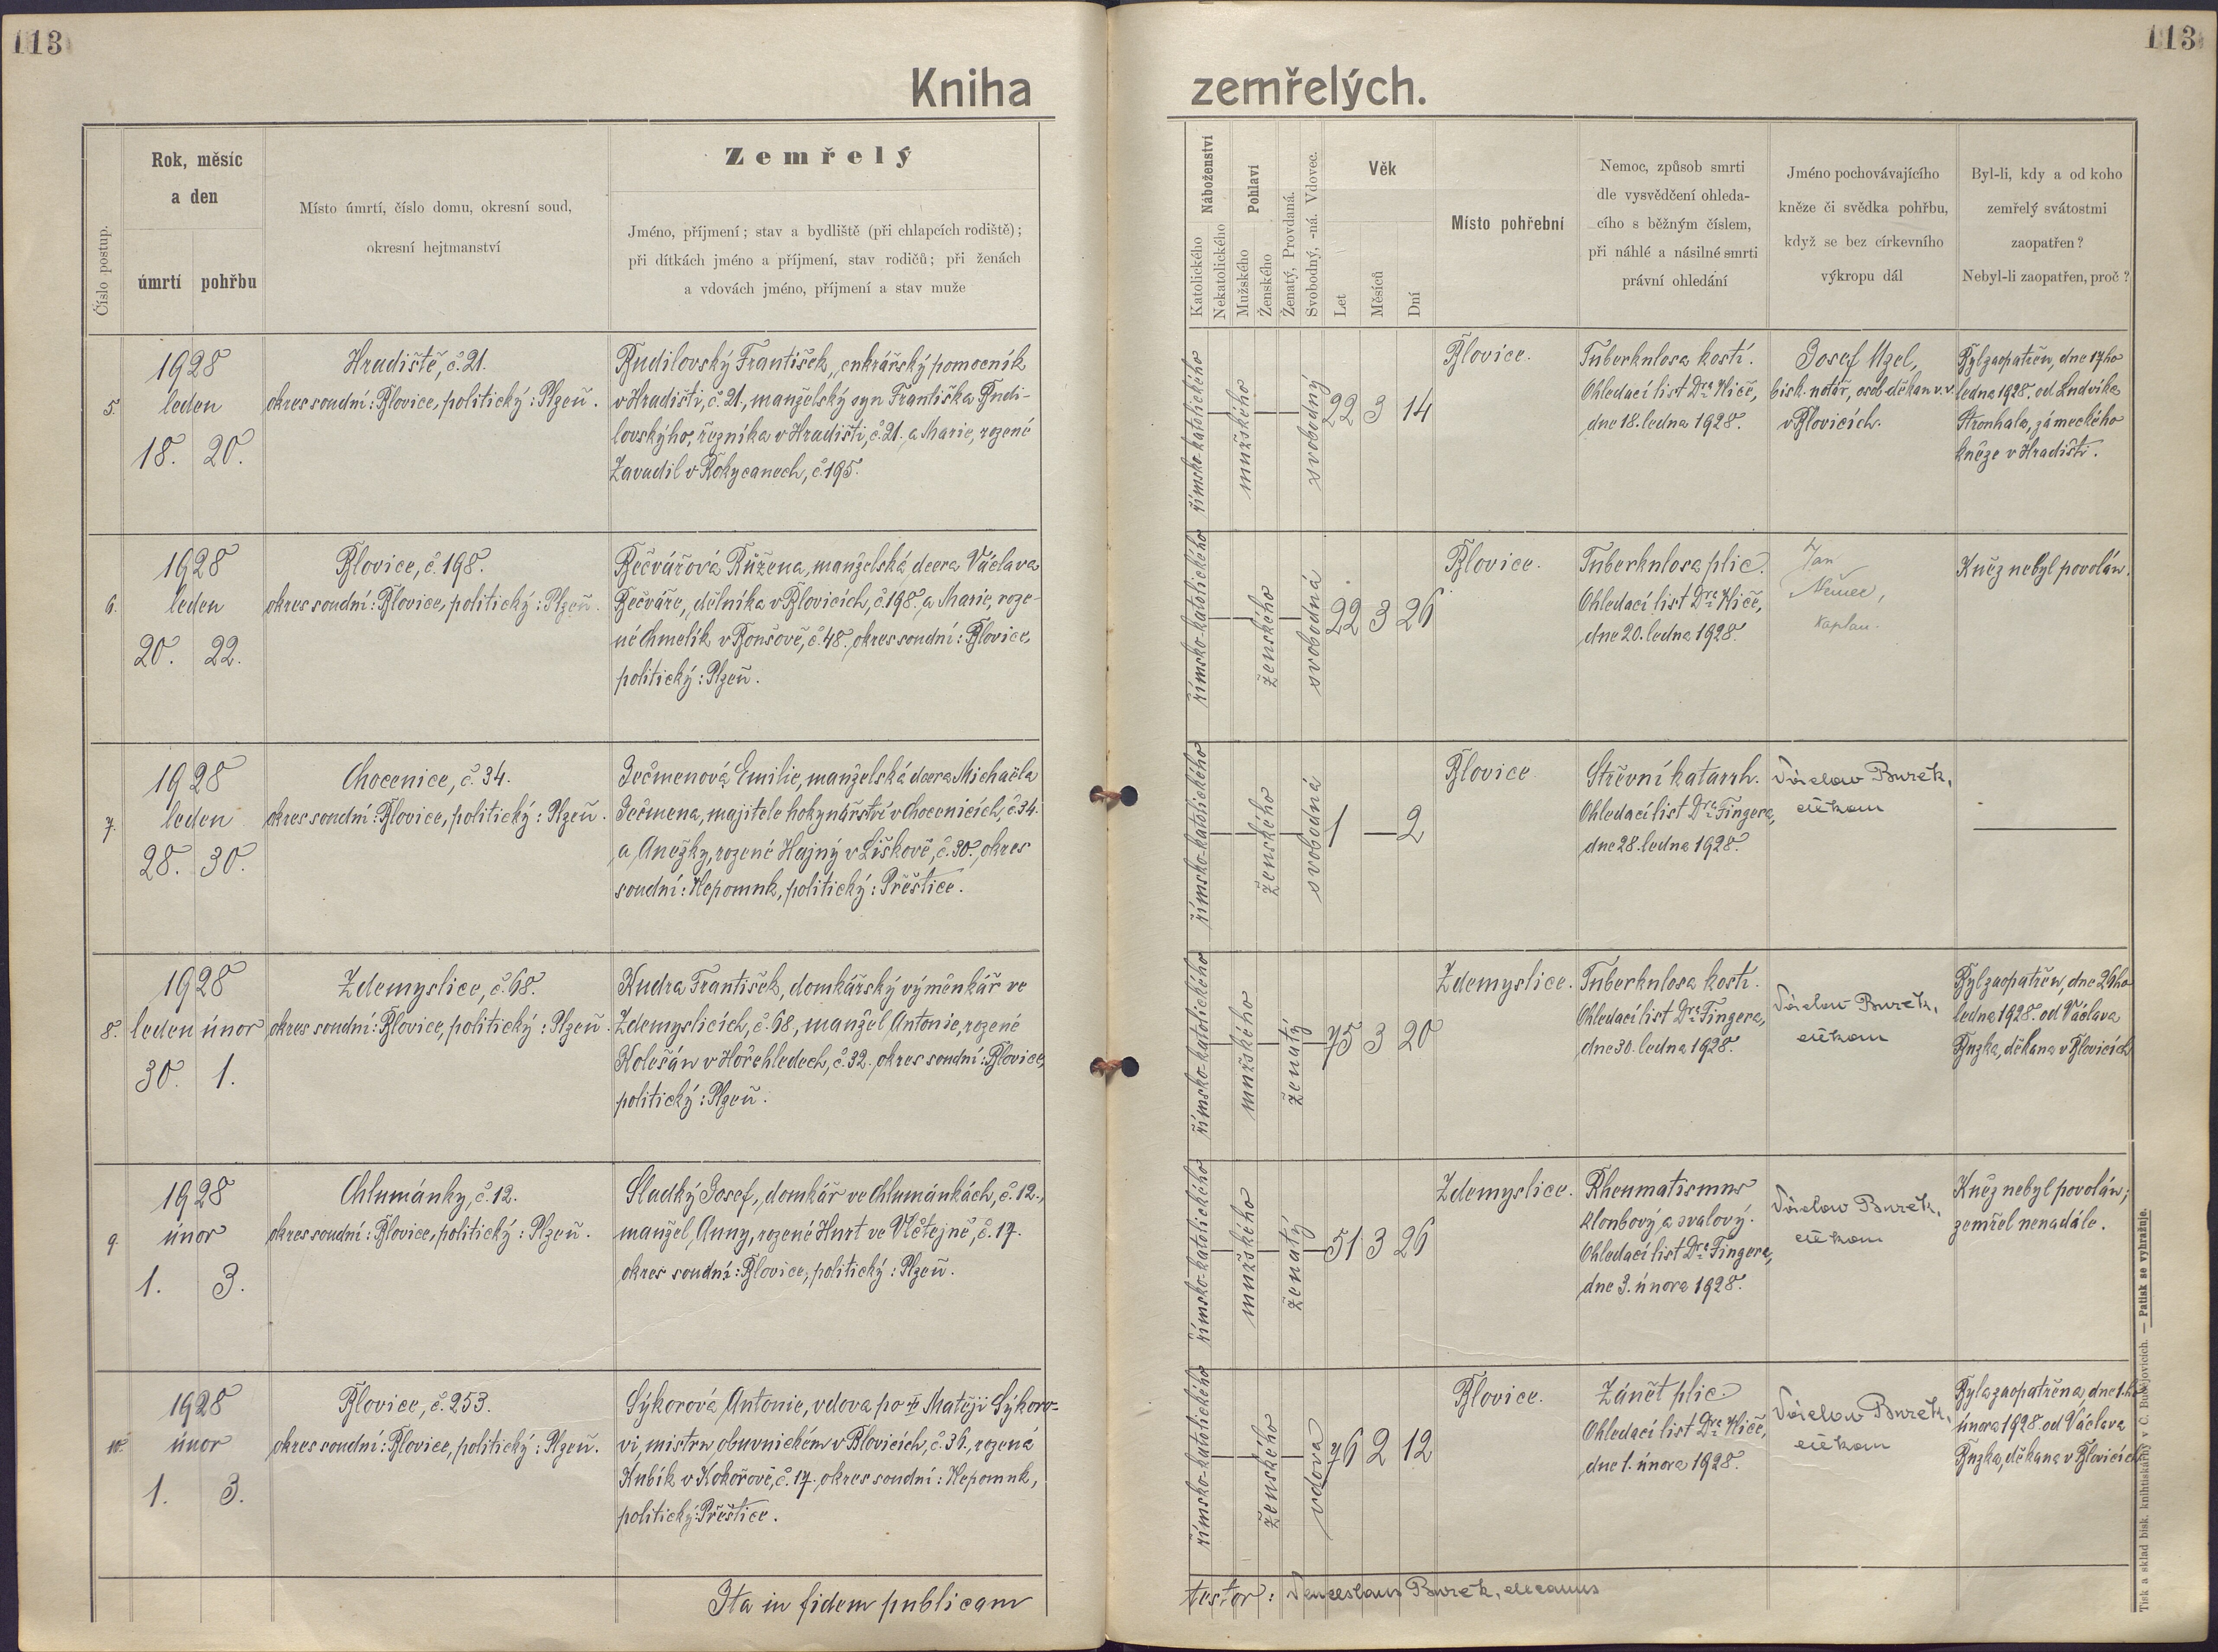 113
113
Kniha
zemřelých.
Číslo postup.
Rok, měsíc
a den
úmrtí
pohřbu
Místo úmrtí, číslo domu, okresní soud,
okresní hejtmanství
Zemřelý
Jméno, příjmení; stav a bydliště (při chlapcích rodiště);
při dítkách jméno a příjmení, stav rodičů; při ženách
a vdovách jméno, příjmení a stav muže
Náboženství
Katolického
Nekatolického
Pohlaví
Mužského
Ženského
Ženatý, Provdaná.
Svobodný, -ná. Vdovec.
Věk
Let
Měsíců
Dní
Místo pohřební
Nemoc, způsob smrti
dle vysvědčení ohleda-
cího s běžným číslem,
při náhlé a násilné smrti
právní ohledání
Jméno pochovávajícího
kněze či svědka pohřbu,
když se bez církevního
výkropu dál
Byl-li, kdy a od koho
zemřelý svátostmi
zaopatřen?
Nebyl-li zaopatřen, proč?
5.
1928
leden
18. 20.
Hradiště, č. 21.
okres soudní: Blovice, politický: Plzeň.
Budilovský František, cukrářský pomocník
v Hradišti, č. 21., manželský syn Františka Budi-
lovského, řezníka v Hradišti, č. 21. a Marie, rozené
Zavadil v Rokycanech, č. 195.
římsko-katolického
mužského
svobodný
22 3 14
Blovice.
Tuberkulosa kostí.
Ohledací list Dra Kličě,
dne 18. ledna 1928.
Josef Uzel,
bisk. notář, osob. děkan v. v.
v Blovicích.
Byl zaopatřen, dne 17ho
ledna 1928. od Ludvíka
Stronhala, zámeckého
kněze v Hradišti.
6.
1928
leden
20. 22.
Blovice, č. 198.
okres soudní: Blovice, politický: Plzeň.
Bečvářová Růžena, manželská dcera Václava
Bečváře, dělníka v Blovicích, č. 198. a Marie, roze-
né Chmelík v Bonšově, č. 48. okres soudní: Blovice,
politický: Plzeň.
římsko-katolického
ženského
svobodná
22 3 26
Blovice.
Tuberkulosa plic.
Ohledací list Dra Kličě,
dne 20. ledna 1928.
Jan
Němec,
kaplan.
Kněz nebyl povolán.
7.
1928
leden
28. 30.
Chocenice, č. 34.
okres soudní: Blovice, politický: Plzeň.
Ječmenová Emilie, manželská dcera Michaëla
Ječmena, majitele hokynářství v Chocenicích, č. 34.
a Anežky, rozené Hajný v Liškově, č. 30., okres
soudní: Nepomuk, politický: Přeštice.
římsko-katolického
ženského
svobodná
1 — 2
Blovice.
Střevní katarrh.
Ohledací list Dra Fingera,
dne 28. ledna 1928.
Václav Buzek,
děkan
8.
1928
leden únor
30. 1.
Zdemyslice, č. 68.
okres soudní: Blovice, politický: Plzeň.
Kudra František, domkářský výměnkář ve
Zdemyslicích, č. 68, manžel Antonie, rozené
Kolešán v Hořehledech, č. 32. okres soudní: Blovice,
politický: Plzeň.
římsko-katolického
mužského
ženatý
75 3 20
Zdemyslice.
Tuberkulosa kostí.
Ohledací list Dra Fingera,
dne 30. ledna 1928.
Václav Buzek,
děkan
Byl zaopatřen, dne 26ho
ledna 1928. od Václava
Buzka, děkana v Blovicích
9.
1928
únor
1. 3.
Chlumánky, č. 12.
okres soudní: Blovice, politický: Plzeň.
Sladký Josef, domkář ve Chlumánkách, č. 12.,
manžel Anny, rozené Hurt ve Vlčtejně, č. 17.
okres soudní: Blovice, politický: Plzeň.
římsko-katolického
mužského
ženatý
51 3 26
Zdemyslice.
Rheumatismus
kloubový a svalový.
Ohledací list Dra Fingera,
dne 3. února 1928.
Václav Buzek,
děkan
Kněz nebyl povolán;
zemřel nenadále.
10.
1928
únor
1. 3.
Blovice, č. 253.
okres soudní: Blovice, politický: Plzeň.
Sýkorová Antonie, vdova po Matěji Sýkoro-
vi, mistru obuvnickém v Blovicích, č. 36., rozená
Kubík v Kokořově, č. 17., okres soudní: Nepomuk,
politický: Přeštice.
římsko-katolického
ženského
vdova
76 2 12
Blovice.
Zánět plic.
Ohledací list Dra Kličě,
dne 1. února 1928.
Václav Buzek,
děkan
Byla zaopatřena, dne 1.ho
února 1928. od Václava
Buzka, děkana v Blovicích
Ita in fidem publicam
testor: Venceslaus Buzek, decanus
Tisk a sklad bisk. knihtiskárny v Č. Budějovicích. — Patisk se vyhražuje.